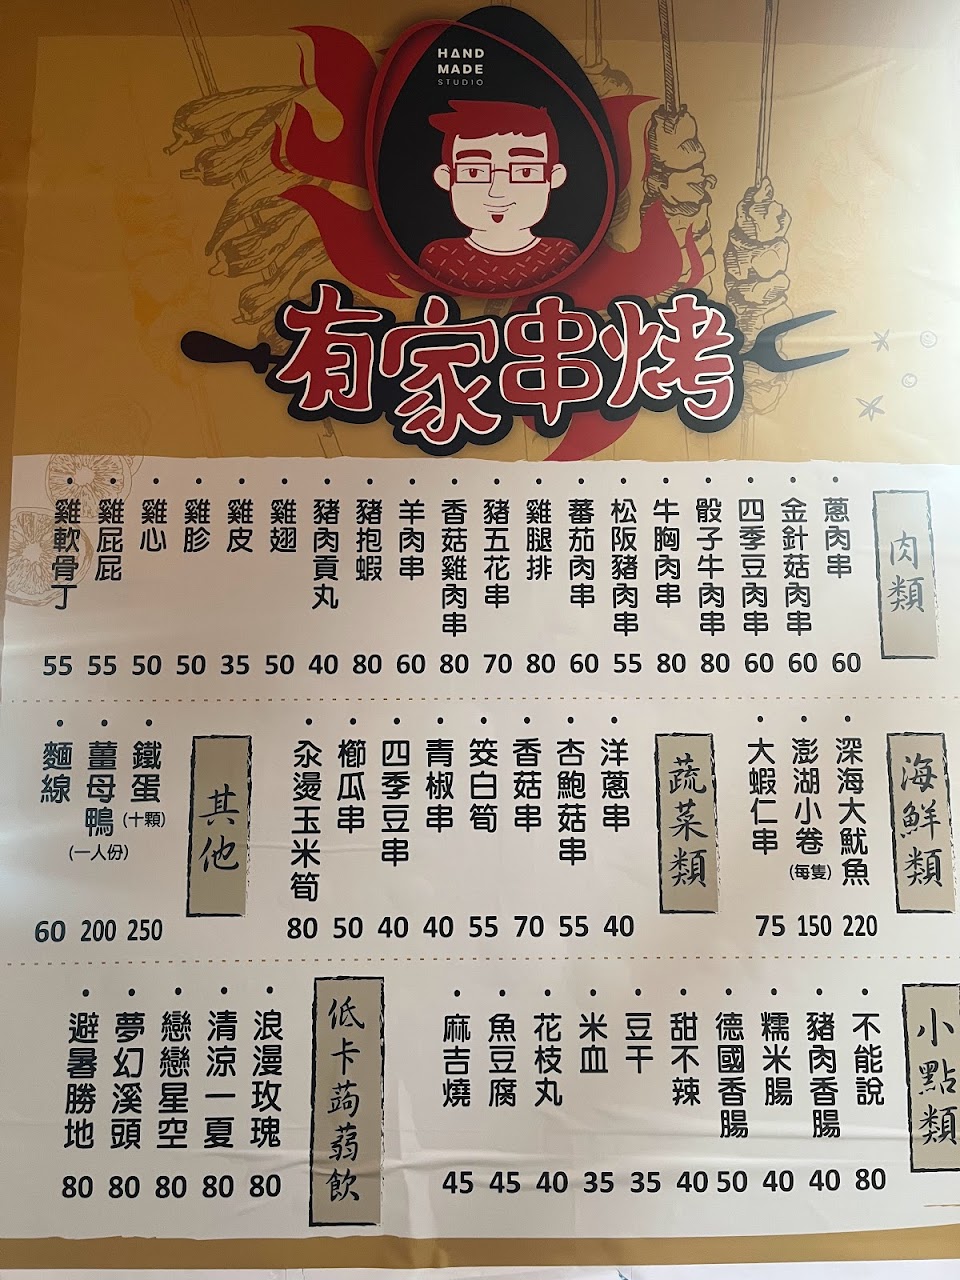 HAND
MADE
STUDIO
有家串烤
肉類
蔥肉串 60
金針菇肉串 60
四季豆肉串 60
骰子牛肉串 80
牛胸肉串 80
松阪豬肉串 55
蕃茄肉串 60
雞腿排 80
豬五花串 70
香菇雞肉串 80
羊肉串 60
豬抱蝦 80
豬肉貢丸 40
雞翅 50
雞皮 35
雞胗 50
雞心 50
雞屁屁 55
雞軟骨丁 55
海鮮類
深海大魷魚 220
澎湖小卷(每隻) 150
大蝦仁串 75
蔬菜類
洋蔥串 40
杏鮑菇串 55
香菇串 70
筊白筍 55
青椒串 40
四季豆串 40
櫛瓜串 50
汆燙玉米筍 80
其他
鐵蛋(十顆) 250
薑母鴨(一人份) 200
麵線 60
小點類
不能說 80
豬肉香腸 40
糯米腸 40
德國香腸 50
甜不辣 40
豆干 35
米血 35
花枝丸 40
魚豆腐 45
麻吉燒 45
低卡蒟蒻飲
浪漫玫瑰 80
清涼一夏 80
戀戀星空 80
夢幻溪頭 80
避暑勝地 80